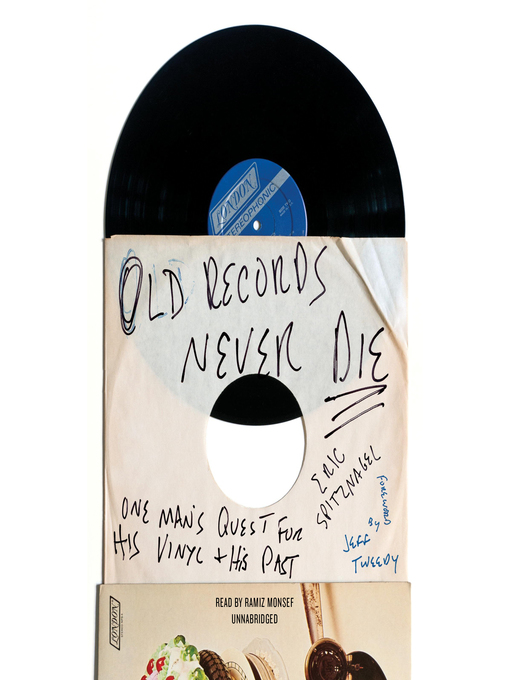 LONDON
STEREOPHONIC
OLD RECORDS
NEVER DIE
ERIC
SPITZNAGEL
FOREWORD
BY
JEFF
TWEEDY
ONE MAN'S QUEST FOR
HIS VINYL + HIS PAST
READ BY RAMIZ MONSEF
UNNABRIDGED
LONDON